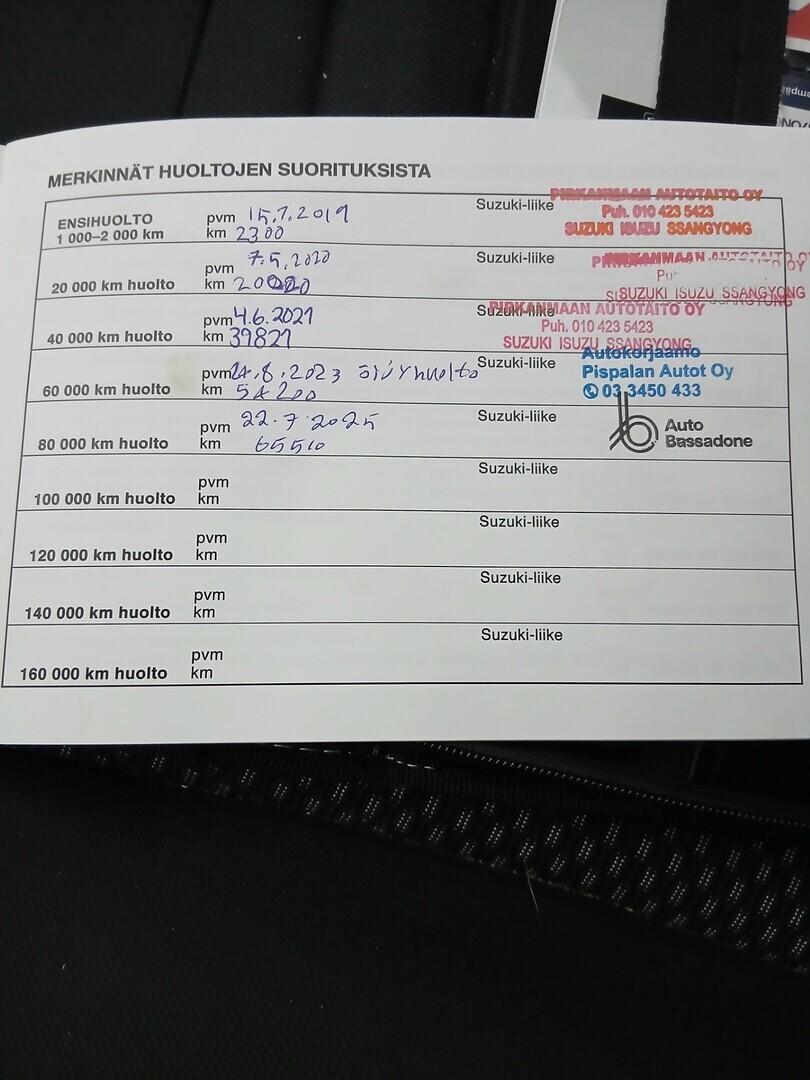 MERKINNÄT HUOLTOJEN SUORITUKSISTA
ENSIHUOLTO
1 000–2 000 km
pvm 15.7.2019
km 2300
Suzuki-liike
PIRKANMAAN AUTOTAITO OY
Puh. 010 423 5423
SUZUKI ISUZU SSANGYONG
20 000 km huolto
pvm 7.5.2020
km
Suzuki-liike
PIRKANMAAN AUTOTAITO OY
SUZUKI ISUZU SSANGYONG
40 000 km huolto
pvm 4.6.2021
km 39821
Suzuki-liike
PIRKANMAAN AUTOTAITO OY
Puh. 010 423 5423
SUZUKI ISUZU SSANGYONG
60 000 km huolto
pvm 24.8.2023 öljyhuolto
km 54200
Suzuki-liike
Autokorjaamo
Pispalan Autot Oy
03 3450 433
80 000 km huolto
pvm 22.7.2025
km 65510
Suzuki-liike
Auto
Bassadone
100 000 km huolto
pvm
km
Suzuki-liike
120 000 km huolto
pvm
km
Suzuki-liike
140 000 km huolto
pvm
km
Suzuki-liike
160 000 km huolto
pvm
km
Suzuki-liike